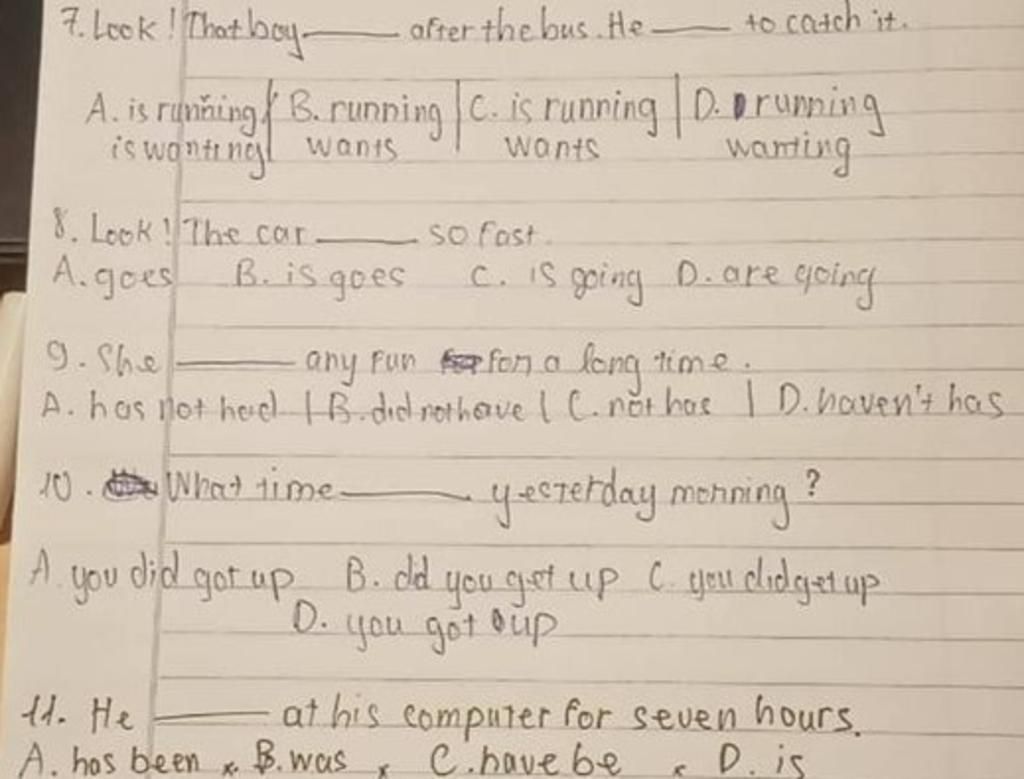 7. Look! That boy ______ after the bus. He ______ to catch it.
A. is running | B. running | C. is running | D. running
is wanting | wants wants wanting
8. Look! The car ______ so fast.
A. goes B. is goes C. is going D. are going
9. She ______ any fun for a long time.
A. has not had | B. did not have | C. not has | D. haven't has
10. What time ______ yesterday morning?
A. you did got up B. did you get up C. you did get up
D. you got up
11. He ______ at his computer for seven hours.
A. has been x B. was x C. have be x D. is